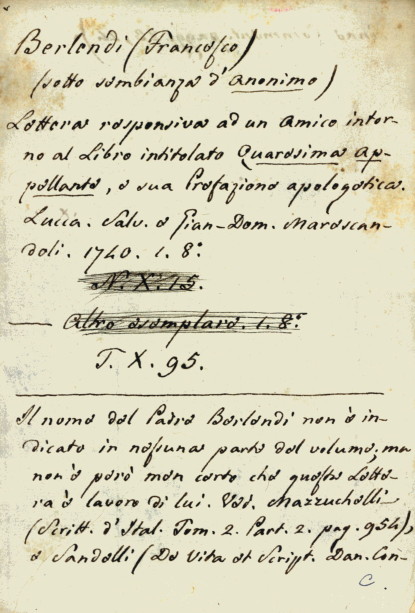 Berlendi (Francesco)
(sotto sembianza d'Anonimo)
Lettera responsiva ad un Amico intor-
no al Libro intitolato Quaresima Ap-
pellante, e sua Prefazione apologetica.
Lucca. Salv. e Gian-Dom. Marescan-
doli. 1740. 1. 8.º
N. X. 15.
Altro esemplare. 1. 8.º
T. X. 95.
Il nome del Padre Berlendi non è in-
dicato in nessuna parte del volume; ma
non è però men certo che questa Lette-
ra è lavoro di lui. Ved. Mazzuchelli
(Scritt. d'Ital. Tom. 2. Part. 2. pag. 954),
e Sandelli (De Vita et Script. Dan. Con-
C.